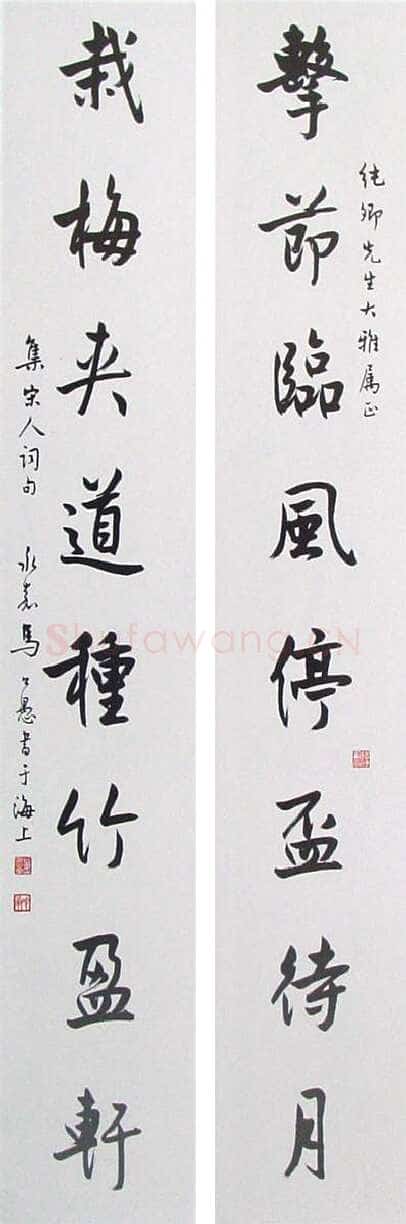 純卿先生大雅属正
擊節臨風停盃待月
栽梅夾道種竹盈軒
集宋人詞句 永嘉馬公愚書于海上
Shufawang.CN